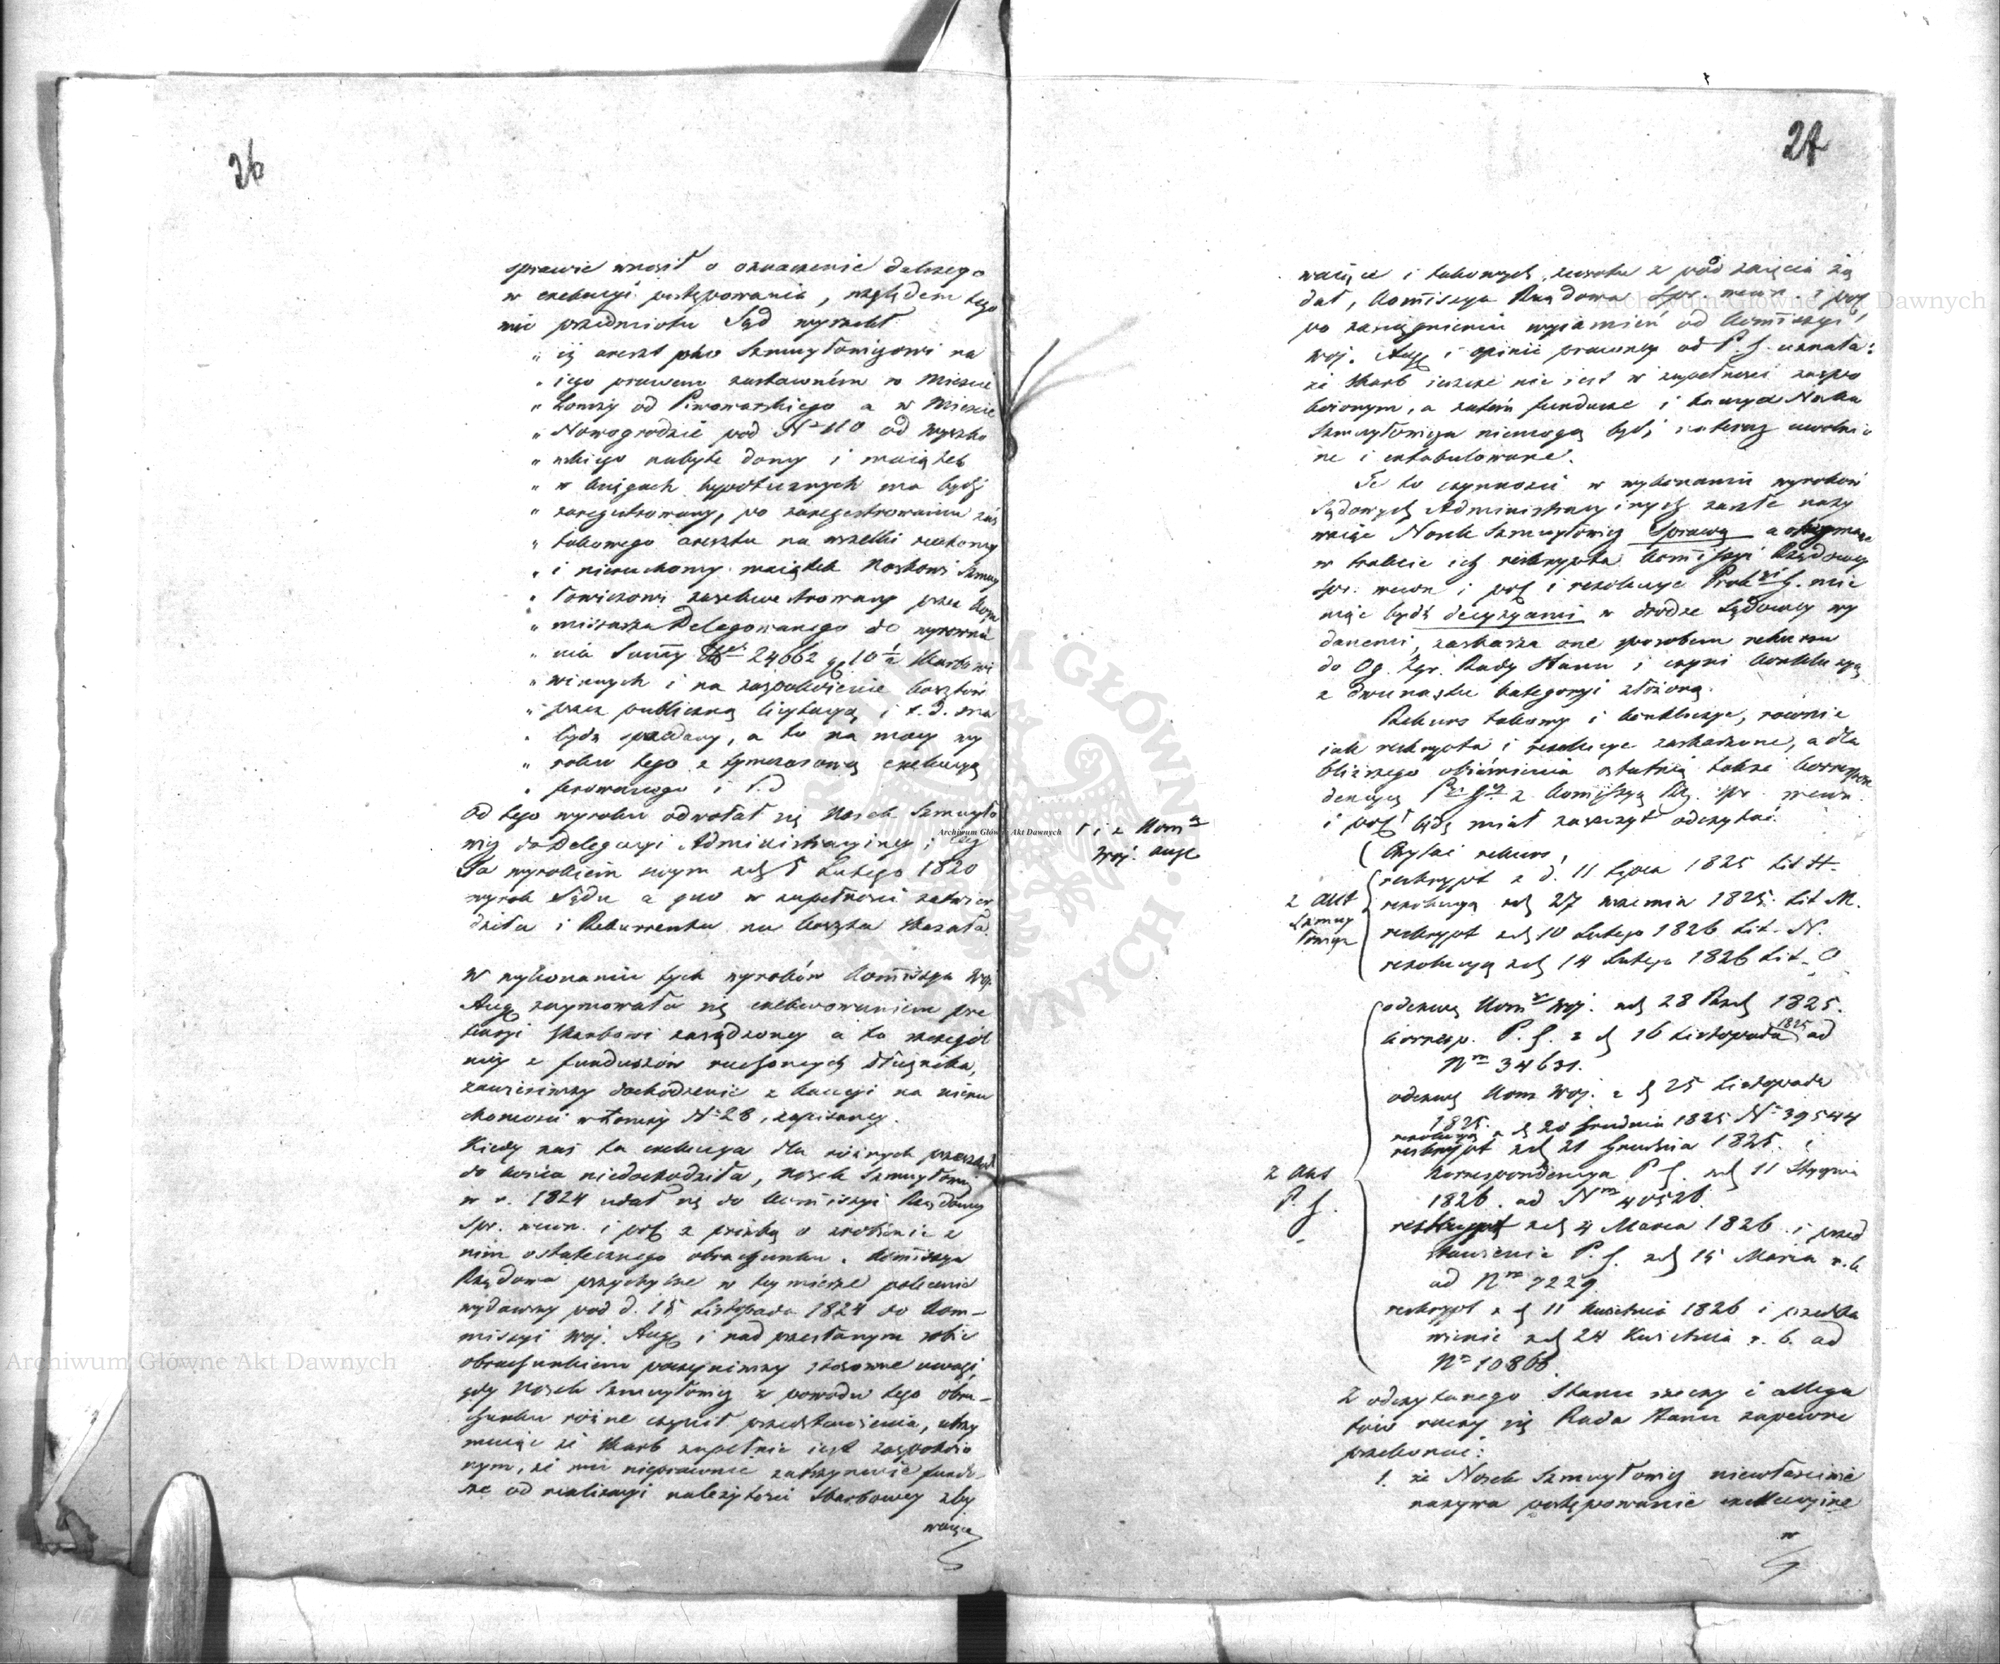 26
sprawie wnosił o oznaczenie dalszego
w exekucyi postępowania, względem tego
nic przedmiotu Sąd wyrzekł
„ iż areszt pko Szmuyłowiczowi na
„ iego prawem zastawném w Mieście
„ Łomży od Piwowarskiego a w Mieście
„ Nowogrodzie pod Nº 110 od Wyszko
„ wskiego nabyte domy i maiątek
„ w księgach hypotecznych ma bydź
„ zaregestrowany, po zaregestrowaniu zaś
„ takowego aresztu na wszelki ruchomy
„ i nieruchomy maiątek Noskowi Szmuy
„ łowiczowi zasekwestrowany przez Kom
„ missarza Delegowanego do wyrówna
„ nia Summy 24662 g 10 ½ Skarbowi
„ winnych i na zaspokoienie kosztów
„ przez publiczną licytacyą i t. d. ma
„ bydź sprzedany, a to na mocy wy
„ roku tego z tymczasową exekucyą
„ ferowanego i t. d
Od tego wyroku odwołał się Nosek Szmuyło
wicz do Delegacyi Administracyiney, lecz
Ta wyrokiem swym z d. 5 Lutego 1820
wyrok Sądu a quo w zupełności zatwier
dziła i Rekurrenta na koszta skazała.
W wykonaniu tych wyroków Kommissya Woj.
Aug. zaymowała się exekwowaniem pre
tensyi Skarbowi zasądzoney a to szczegól
niey z funduszów ruchomych dłużnika,
zawiesiwszy dochodzenie z kaucyi na nieru
chomości w Łomży Nº 28, zapisaney.
Kiedy zaś ta exekucya dla różnych przeszkód
do końca niedochodziła, Nosek Szmuyłowicz
w r. 1824 udał się do Kommissyi Rządowey
Spr. wewn. i pol. z prośbą o zrobienie z
nim ostatecznego obrachunku. Kommissya
Rządowa przychylne w tey mierze polecenie
wydawszy pod d. 15 Listopada 1824 do Kom-
missyi Woj. Aug. i nad przesłanym sobie
obrachunkiem poczyniwszy stosowne uwagi,
gdy Nosek Szmuyłowicz z powodu tego obra-
chunku różne czynił przedstawienia, utrzy
muiąc że Skarb zupełnie iest zaspokoio
nym, że mu nieprawnie zatrzymuie fundu-
sze od realizacyi należytości Skarbowey zby
waiące
27
waiące i takowych zwrotu z pod zaięcia żą
dał, Kommissya Rządowa Spr. wewn. i pol.
po zasiągnieniu wyiaśnień od Kommissyi
Woj. Aug. i opinii prawney od P. J. uznała:
że Skarb ieszcze nie iest w zupełności zaspo
koionym, a zatém fundusze i kaucya Noska
Szmuyłowicza niemogą bydź na teraz uwolnio
ne i extabulowane.
Te to czynności w wykonaniu wyroków
Sądowych Administracyinych zaszłe nazy
waiąc Nosek Szmuyłowicz Sprawą a otrzymane
w trakcie ich reskrypta Kommissyi Rządowey
Spr. wewn. i pol. i rezolucye Prok. J. mie
niąc bydź decyzyami w drodze Sądowey wy
danemi, zaskarża one sposobem rekursu
do Og. Zgr. Rady Stanu i czyni konkluzyą
z dwunastu kategoryi złożoną.
Rekurs takowy i konkluzye, równie
iak reskrypta i rezolucye zaskarżone, a dla
bliższego obiaśnienia ostatnią także korrespon
dencyą P. J. z Kommissyą Rz. spr. wewn.
i pol. będę miał zaszczyt odczytać.
i z Kom.
Woj. Aug.
Czytać rekurs
z Akt
Szmuy
łowicza
reskrypt z d. 11 Lipca 1825 Lit. H.
rezolucyą z d. 27 wrzesnia 1825. Lit. M.
reskrypt z d. 10 Lutego 1826 Lit. N.
rezolucyą z d. 14 Lutego 1826 Lit. O
z Akt
P. J.
odezwę Kom. Woj. z d. 28 Paźd. 1825.
korresp. P. J. z d. 16 Listopada 1825 ad
Nm 34631.
odezwę Kom. Woj. z d. 25 Listopada
1825.
rezolucyą z d. 20 Grudnia 1825 Nº 39544
reskrypt z d. 21 Grudnia 1825. i
korrespondencya P. J. z d. 11 Stycznia
1826. ad Nm 40526.
reskrypt z d. 4 Marca 1826 i przed
stawienie P. J. z d. 15 Marca r. b.
ad Nm 7229
reskrypt z d. 11 Kwietnia 1826 i przedsta
wienie z d. 24 Kwietnia r. b. ad
Nº 10866.
Z odczytanego Stanu rzeczy i allega
tów raczy się Rada Stanu zapewne
przekonać:
1. że Nosek Szmuyłowicz niewłaściwie
nazywa postępowanie exekucyine
w
Archiwum Główne Akt Dawnych
Archiwum Główne Akt Dawnych
Archiwum Główne Akt Dawnych